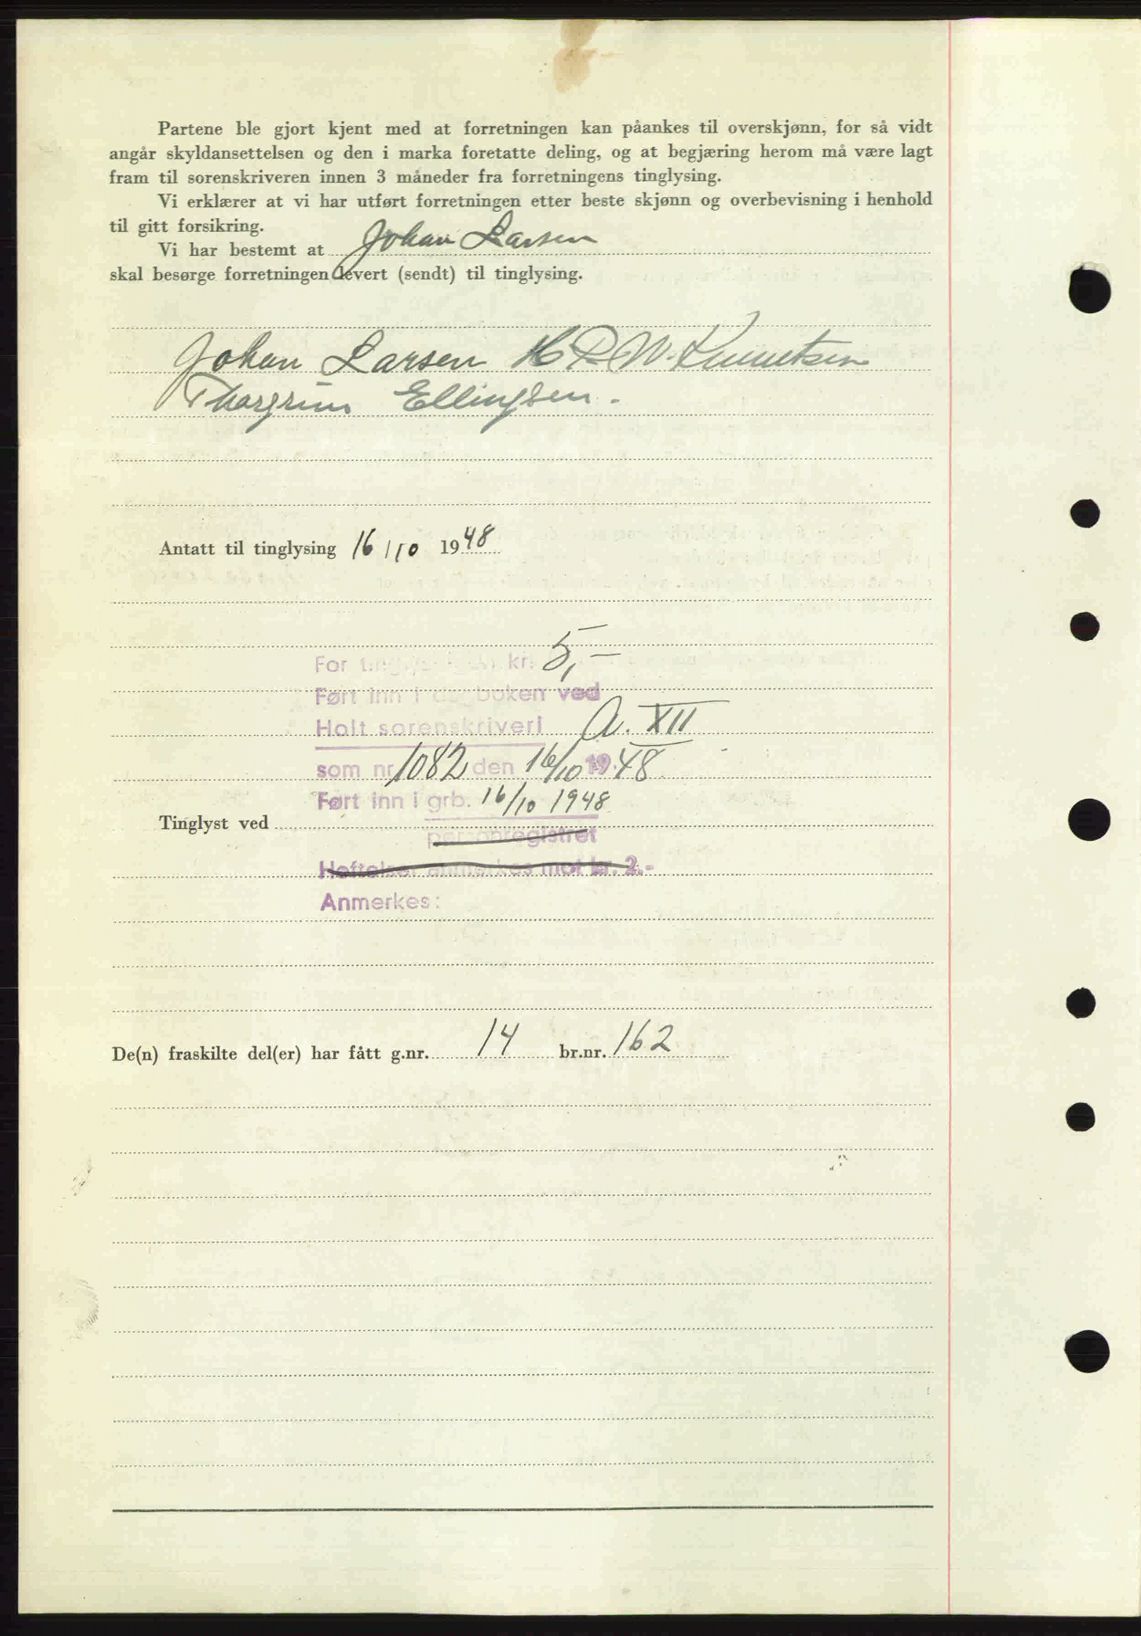 Partene ble gjort kjent med at forretningen kan påankes til overskjønn, for så vidt
angår skyldansettelsen og den i marka foretatte deling, og at begjæring herom må være lagt
fram til sorenskriveren innen 3 måneder fra forretningens tinglysing.
Vi erklærer at vi har utført forretningen etter beste skjønn og overbevisning i henhold
til gitt forsikring.
Vi har bestemt at Johan Larsen
skal besørge forretningen levert (sendt) til tinglysing.
Johan Larsen H P W. Knudtsen
Thorgrim Ellingsen.
Antatt til tinglysing 16/10 1948
For tinglysingen kr. 5,-
Ført inn i dagboken ved
Holt sorenskriveri A. XII
som nr 1082 den 16/10 1948
Ført inn i grb. 16/10 1948
Tinglyst ved
personregistret
Heftelser anmerkes mot kr. 2.-
Anmerkes:
De(n) fraskilte del(er) har fått g.nr. 14 br.nr. 162